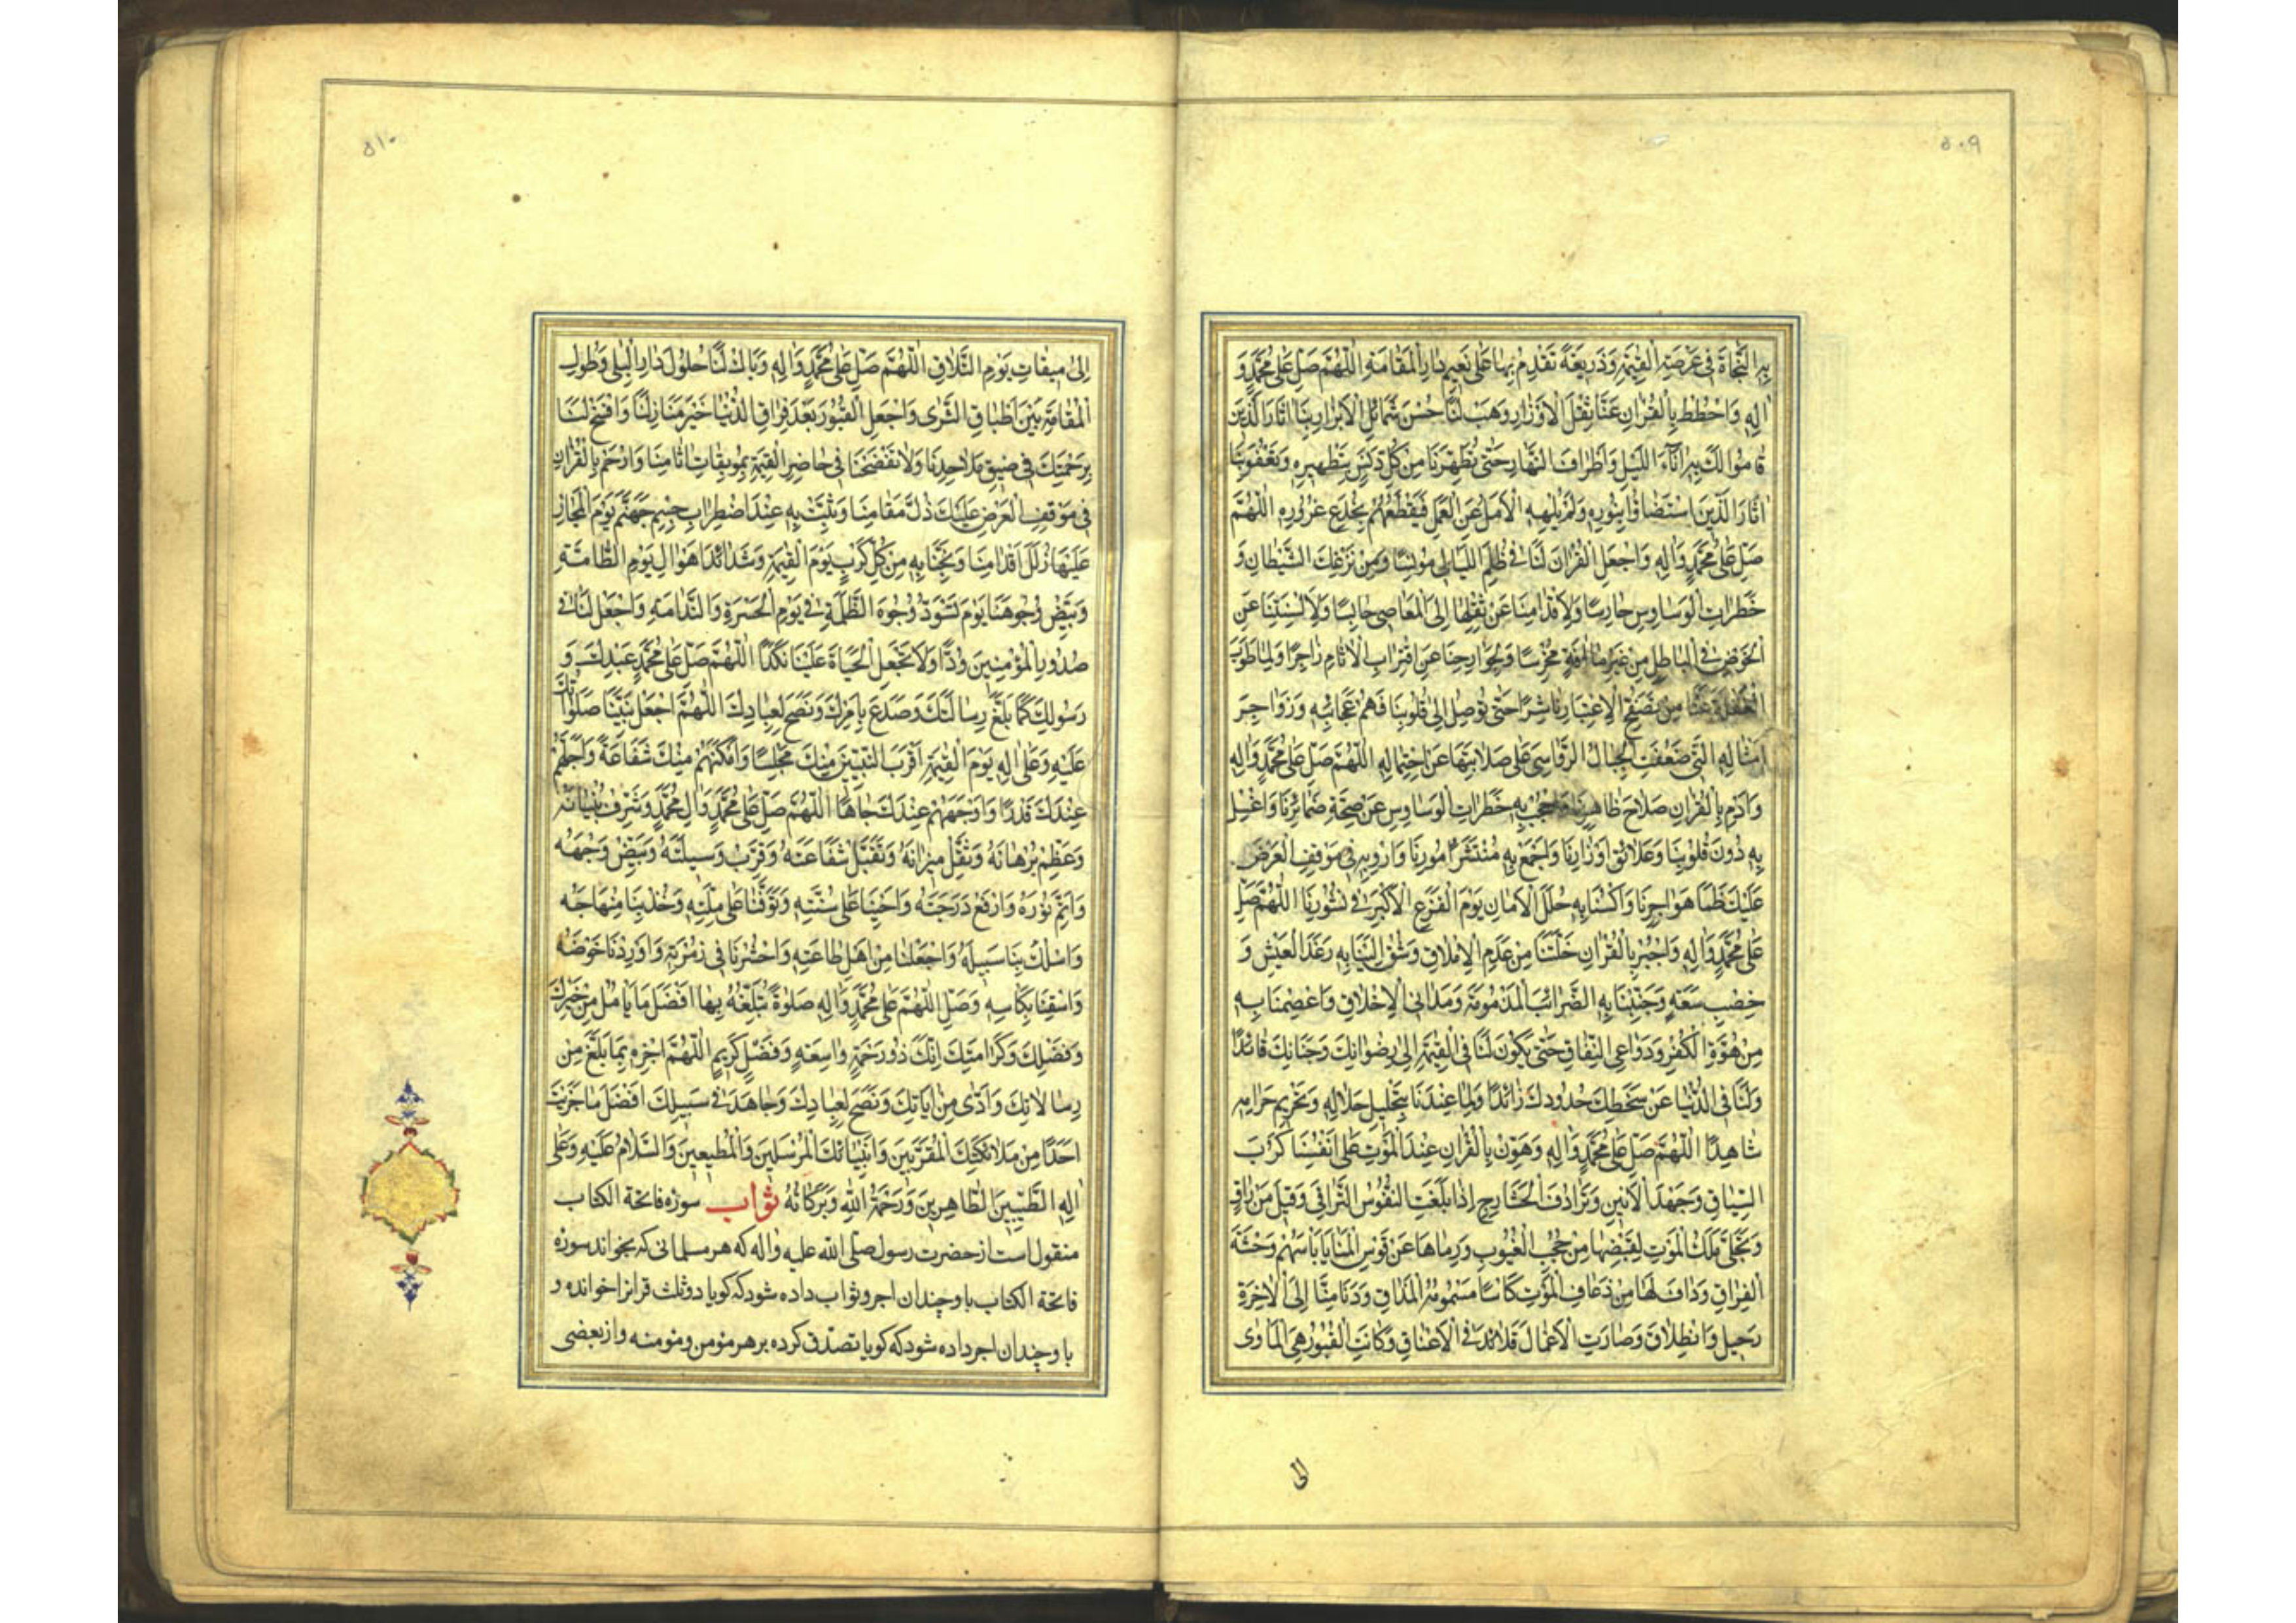 ٥٠٩
بِهِ النَّجَاةَ فِي عَرْصَةِ الْقِيٰمَةِ وَذَرِيعَةً نَقْدِمُ بِهَا عَلَى نَعِيمِ دَارِ الْمُقَامَةِ اللّٰهُمَّ صَلِّ عَلَى مُحَمَّدٍ وَ
اٰلِهِ وَاحْطُطْ بِالْقُرْاٰنِ عَنَّا ثِقْلَ الْاَوْزَارِ وَهَبْ لَنَا حُسْنَ شَمَائِلِ الْاَبْرَارِ اٰثَارَ الَّذِينَ
قَامُوا لَكَ بِهِ اٰنَآءَ اللَّيْلِ وَاَطْرَافَ النَّهَارِ حَتّٰى تُطَهِّرَنَا مِنْ كُلِّ دَنَسٍ بِتَطْهِيرِهِ وَتَقْفُوَ بِنَا
اٰثَارَ الَّذِينَ اسْتَضَاؤُا بِنُورِهِ وَلَمْ يُلْهِهِمُ الْاَمَلُ عَنِ الْعَمَلِ فَيَقْطَعَهُمْ بِخُدَعِ غُرُورِهِ اللّٰهُمَّ
صَلِّ عَلَى مُحَمَّدٍ وَاٰلِهِ وَاجْعَلِ الْقُرْاٰنَ لَنَا فِي ظُلَمِ اللَّيَالِي مُونِسًا وَمِنْ نَزَغَاتِ الشَّيْطَانِ وَ
خَطَرَاتِ الْوَسَاوِسِ حَارِسًا وَلِاَقْدَامِنَا عَنْ نَقْلِهَا اِلَى الْمَعَاصِي حَابِسًا وَلِاَلْسِنَتِنَا عَنِ
الْخَوْضِ فِي الْبَاطِلِ مِنْ غَيْرِ مَا اٰفَةٍ مُخْرِسًا وَلِجَوَارِحِنَا عَنِ اقْتِرَابِ الْاٰثَامِ زَاجِرًا وَلِمَا طَوَتِ
الْغَفْلَةُ عَنَّا مِنْ تَصَفُّحِ الْاِعْتِبَارِ نَاشِرًا حَتّٰى تُوصِلَ اِلَى قُلُوبِنَا فَهْمَ عَجَائِبِهِ وَزَوَاجِرَ
اَمْثَالِهِ الَّتِي ضَعُفَتِ الْجِبَالُ الرَّوَاسِي عَلَى صَلَابَتِهَا عَنِ احْتِمَالِهِ اللّٰهُمَّ صَلِّ عَلَى مُحَمَّدٍ وَاٰلِهِ
وَاَدِمْ بِالْقُرْاٰنِ صَلَاحَ ظَاهِرِنَا وَاحْجُبْ بِهِ خَطَرَاتِ الْوَسَاوِسِ عَنْ صِحَّةِ ضَمَائِرِنَا وَاغْسِلْ
بِهِ دَرَنَ قُلُوبِنَا وَعَلَائِقَ اَوْزَارِنَا وَاجْمَعْ بِهِ مُنْتَشَرَ اُمُورِنَا وَاَرْوِ بِهِ فِي مَوْقِفِ الْعَرْضِ
عَلَيْكَ ظَمَاَ هَوَاجِرِنَا وَاكْسُنَا بِهِ حُلَلَ الْاَمَانِ يَوْمَ الْفَزَعِ الْاَكْبَرِ فِي نُشُورِنَا اللّٰهُمَّ صَلِّ
عَلَى مُحَمَّدٍ وَاٰلِهِ وَاجْبُرْ بِالْقُرْاٰنِ خَلَّتَنَا مِنْ عَدَمِ الْاِمْلَاقِ وَسُقْ اِلَيْنَا بِهِ رَغَدَ الْعَيْشِ وَ
خِصْبَ سَعَةٍ وَجَنِّبْنَا بِهِ الضَّرَائِبَ الْمَذْمُومَةَ وَمَدَانِيَ الْاَخْلَاقِ وَاعْصِمْنَا بِهِ
مِنْ هُوَّةِ الْكُفْرِ وَدَوَاعِي النِّفَاقِ حَتّٰى يَكُونَ لَنَا فِي الْقِيٰمَةِ اِلَى رِضْوَانِكَ وَجِنَانِكَ قَائِدًا
وَلَنَا فِي الدُّنْيَا عَنْ سَخَطِكَ حُدُودِكَ ذَائِدًا وَلِمَا عِنْدَنَا بِتَحْلِيلِ حَلَالِهِ وَتَحْرِيمِ حَرَامِهِ
شَاهِدًا اللّٰهُمَّ صَلِّ عَلَى مُحَمَّدٍ وَاٰلِهِ وَهَوِّنْ بِالْقُرْاٰنِ عِنْدَ الْمَوْتِ عَلَى اَنْفُسِنَا كَرْبَ
السِّيَاقِ وَجَهْدَ الْاَنِينِ وَتَرَادُفَ الْحَشَارِجِ اِذَا بَلَغَتِ النُّفُوسُ التَّرَاقِيَ وَقِيلَ مَنْ رَاقٍ
وَتَجَلَّى مَلَكُ الْمَوْتِ لِقَبْضِهَا مِنْ حُجُبِ الْغُيُوبِ وَرَمَاهَا عَنْ قَوْسِ الْمَنَايَا بِاَسْهُمِ وَحْشَةِ
الْفِرَاقِ وَدَافَ لَهَا مِنْ ذُعَافِ الْمَوْتِ كَاْسًا مَسْمُومَةَ الْمَذَاقِ وَدَنَا مِنَّا اِلَى الْاٰخِرَةِ
رَحِيلٌ وَانْطِلَاقٌ وَصَارَتِ الْاَعْمَالُ قَلَائِدَ فِي الْاَعْنَاقِ وَكَانَتِ الْقُبُورُ هِيَ الْمَاْوٰى
الى
٥١٠
اِلَى مِيقَاتِ يَوْمِ التَّلَاقِ اللّٰهُمَّ صَلِّ عَلَى مُحَمَّدٍ وَاٰلِهِ وَبَارِكْ لَنَا حُلُولَ دَارِ الْبِلَى وَطُولِ
الْمُقَامَةِ بَيْنَ اَطْبَاقِ الثَّرٰى وَاجْعَلِ الْقُبُورَ بَعْدَ فِرَاقِ الدُّنْيَا خَيْرَ مَنَازِلِنَا وَافْسَحْ لَنَا
بِرَحْمَتِكَ فِي ضِيقِ مَلَاحِدِنَا وَلَا تَفْضَحْنَا فِي حَاضِرِ الْقِيٰمَةِ بِمُوبِقَاتِ اٰثَامِنَا وَارْحَمْ بِالْقُرْاٰنِ
فِي مَوْقِفِ الْعَرْضِ عَلَيْكَ ذُلَّ مَقَامِنَا وَثَبِّتْ بِهِ عِنْدَ اضْطِرَابِ جِسْرِ جَهَنَّمَ يَوْمَ الْمَجَازِ
عَلَيْهَا زَلَلَ اَقْدَامِنَا وَنَجِّنَا بِهِ مِنْ كُلِّ كَرْبٍ يَوْمَ الْقِيٰمَةِ وَشَدَائِدِ اَهْوَالِ يَوْمِ الطَّامَّةِ
وَبَيِّضْ وُجُوهَنَا يَوْمَ تَسْوَدُّ وُجُوهُ الظَّلَمَةِ فِي يَوْمِ الْحَسْرَةِ وَالنَّدَامَةِ وَاجْعَلْ لَنَا فِي
صُدُورِ الْمُؤْمِنِينَ وُدًّا وَلَا تَجْعَلِ الْحَيَاةَ عَلَيْنَا نَكَدًا اللّٰهُمَّ صَلِّ عَلَى مُحَمَّدٍ عَبْدِكَ وَ
رَسُولِكَ كَمَا بَلَّغَ رِسَالَتَكَ وَصَدَعَ بِاَمْرِكَ وَنَصَحَ لِعِبَادِكَ اللّٰهُمَّ اجْعَلْ نَبِيَّنَا صَلَوَاتُكَ
عَلَيْهِ وَعَلَى اٰلِهِ يَوْمَ الْقِيٰمَةِ اَقْرَبَ النَّبِيِّينَ مِنْكَ مَجْلِسًا وَاَمْكَنَهُمْ مِنْكَ شَفَاعَةً وَاَجَلَّهُمْ
عِنْدَكَ قَدْرًا وَاَوْجَهَهُمْ عِنْدَكَ جَاهًا اللّٰهُمَّ صَلِّ عَلَى مُحَمَّدٍ وَاٰلِ مُحَمَّدٍ وَشَرِّفْ بُنْيَانَهُ
وَعَظِّمْ بُرْهَانَهُ وَثَقِّلْ مِيزَانَهُ وَتَقَبَّلْ شَفَاعَتَهُ وَقَرِّبْ وَسِيلَتَهُ وَبَيِّضْ وَجْهَهُ
وَاَتِمَّ نُورَهُ وَارْفَعْ دَرَجَتَهُ وَاَحْيِنَا عَلَى سُنَّتِهِ وَتَوَفَّنَا عَلَى مِلَّتِهِ وَخُذْ بِنَا مِنْهَاجَهُ
وَاسْلُكْ بِنَا سَبِيلَهُ وَاجْعَلْنَا مِنْ اَهْلِ طَاعَتِهِ وَاحْشُرْنَا فِي زُمْرَتِهِ وَاَوْرِدْنَا حَوْضَهُ
وَاسْقِنَا بِكَاْسِهِ وَصَلِّ اللّٰهُمَّ عَلَى مُحَمَّدٍ وَاٰلِهِ صَلٰوةً تُبَلِّغُهُ بِهَا اَفْضَلَ مَا يَاْمُلُ مِنْ خَيْرِكَ
وَفَضْلِكَ وَكَرَامَتِكَ اِنَّكَ ذُو رَحْمَةٍ وَاسِعَةٍ وَفَضْلٍ كَرِيمٍ اللّٰهُمَّ اجْزِهِ بِمَا بَلَّغَ مِنْ
رِسَالَاتِكَ وَاَدّٰى مِنْ اٰيَاتِكَ وَنَصَحَ لِعِبَادِكَ وَجَاهَدَ فِي سَبِيلِكَ اَفْضَلَ مَا جَزَيْتَ
اَحَدًا مِنْ مَلَائِكَتِكَ الْمُقَرَّبِينَ وَاَنْبِيَائِكَ الْمُرْسَلِينَ وَالْمُطِيعِينَ وَالسَّلَامُ عَلَيْهِ وَعَلَى
اٰلِهِ الطَّيِّبِينَ الطَّاهِرِينَ وَرَحْمَةُ اللّٰهِ وَبَرَكَاتُهُ ثواب سوره فاتحة الكتاب
منقول است از حضرت رسول صلى الله عليه واله كه هر مسلمانى كه بخواند سوره
فاتحة الكتاب با و چندان اجر و ثواب داده شود كه كويا دو ثلث قران خوانده و
با و چندان اجر داده شود كه كويا تصدق كرده بر هر مومن و مومنه و از بعضى